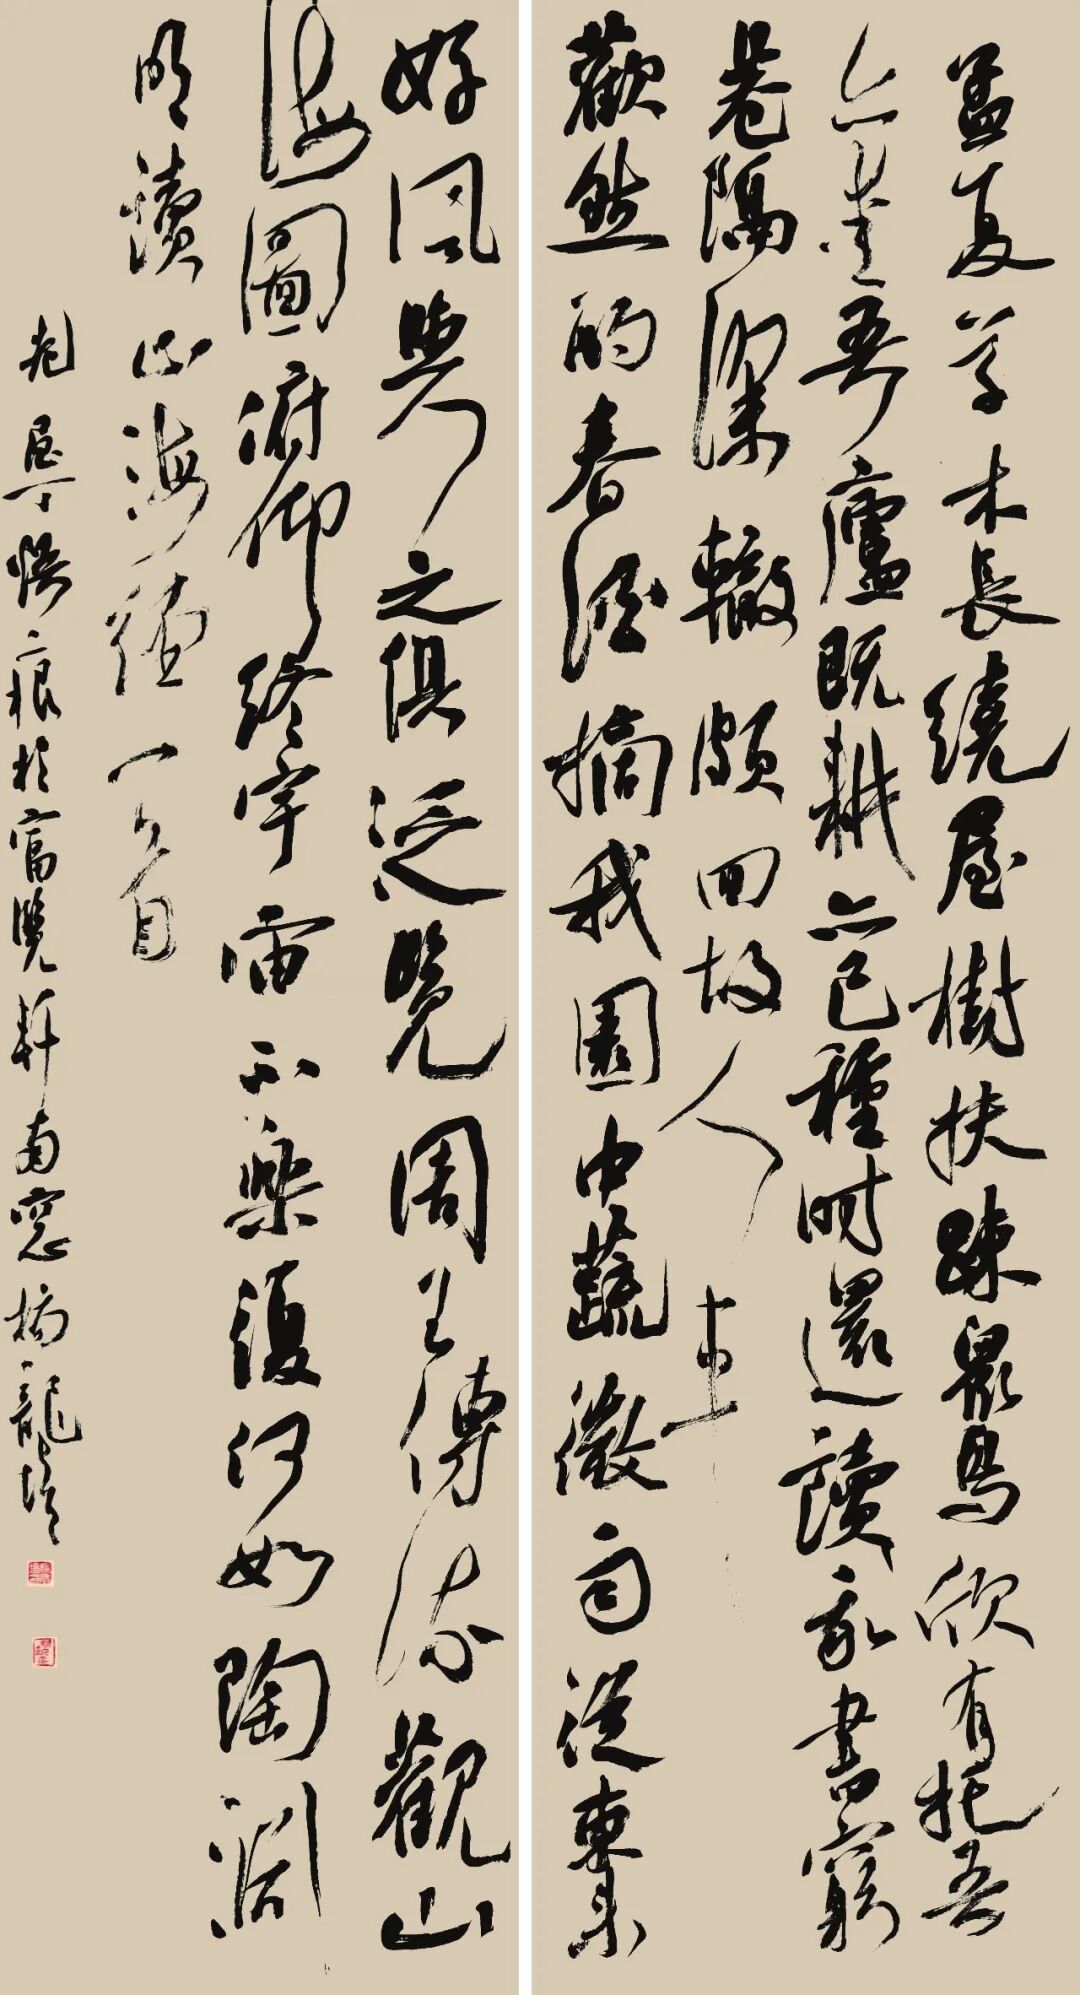 孟夏草木長繞屋樹扶疎眾鳥欣有托吾
亦愛吾廬既耕亦已種時還讀我書窮
巷隔深轍頗回故人車
歡然酌春酒摘我園中蔬微雨從東來
好風與之俱泛覽周王傳流觀山
海圖俯仰終宇宙不樂復何如陶淵
明讀山海經一首
痕於富覽軒南窗楊龍